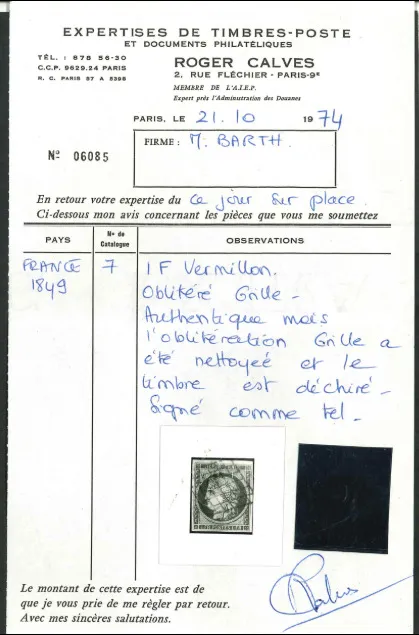 EXPERTISES DE TIMBRES-POSTE
ET DOCUMENTS PHILATÉLIQUES
TÉL. : 878 56-30
C.C.P. 9629.24 PARIS
R. C. PARIS 57 A 8398
ROGER CALVES
2, RUE FLÉCHIER - PARIS-9e
MEMBRE DE L'A.I.E.P.
Expert près l'Administration des Douanes
PARIS, LE 21.10 1974
No 06085
FIRME : M. BARTH.
En retour votre expertise du Ce jour sur place.
Ci-dessous mon avis concernant les pièces que vous me soumettez
PAYS
No de Catalogue
OBSERVATIONS
FRANCE 7 1 F Vermillon.
1849 Oblitéré Grille -
Authentique mais
l'oblitération Grille a
été nettoyée et le
timbre est déchiré -
Signé comme tel.
Le montant de cette expertise est de
que je vous prie de me régler par retour.
Avec mes sincères salutations.
Calves